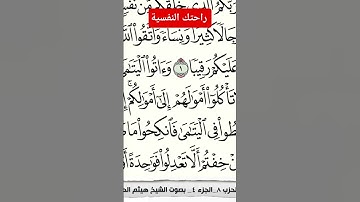 راحتك النفسية
رَبَّكُمُ ٱلَّذِى خَلَقَكُم مِّن نَّفْسٍ
رِجَالًا كَثِيرًا وَنِسَآءً وَٱتَّقُوا۟ ٱللَّهَ
عَلَيْكُمْ رَقِيبًا ١ وَءَاتُوا۟ ٱلْيَتَٰمَىٰ
تَأْكُلُوٓا۟ أَمْوَٰلَهُمْ إِلَىٰٓ أَمْوَٰلِكُمْ
تُقْسِطُوا۟ فِى ٱلْيَتَٰمَىٰ فَٱنكِحُوا۟ مَا
خِفْتُمْ أَلَّا تَعْدِلُوا۟ فَوَٰحِدَةً أَوْ
الحزب ٨_الجزء ٤_ بصوت الشيخ هيثم